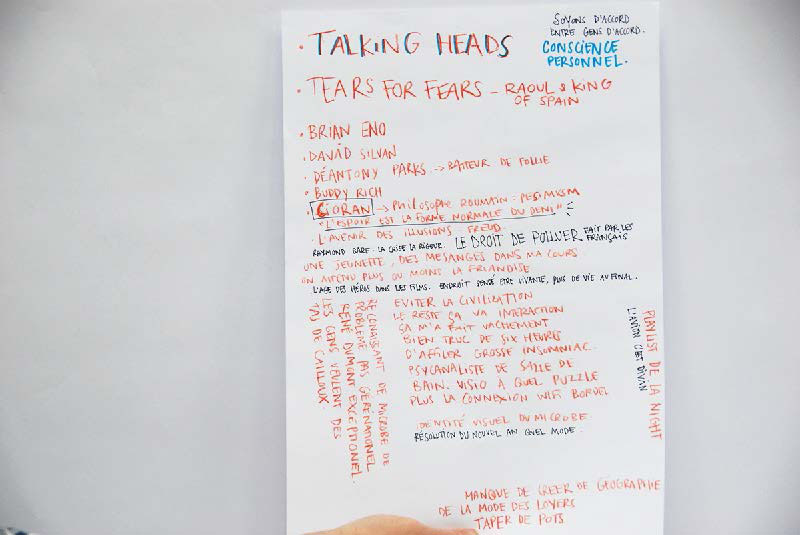 SOYONS D'ACCORD
ENTRE GENS D'ACCORD.
CONSCIENCE
PERSONNEL.
• TALKING HEADS
• TEARS FOR FEARS – RAOUL & KING
OF SPAIN
• BRIAN ENO
• DAVID SILVAN
• DÉANTONY PARKS -> BATTEUR DE FOLLIE
• BUDDY RICH
• CIORAN -> PHILOSOPHE ROUMAIN : PESIMISM
"L'ESPOIR EST LA FORME NORMALE DU DENI"
• L'AVENIR DES ILLUSIONS FREUD.
RAYMOND BARE. LA CRISE LA RIGEUR. LE DROIT DE POLLUER FAIT PAR LES
FRANÇAIS
UNE JEUNETTE, DES MESANGES DANS MA COURS
ON ATTEND PLUS OU MOINS LA FRIANDISE
L'AGE DES HÉROS DANS LES FILMS. ENDROIT SENSÉ ETRE VIVANTE, PLUS DE VIE AU FINAL.
EVITER LA CIVILIZATION
LE RESTE ÇA VA INTERACTION
ÇA M'A FAIT VACHEMENT
BIEN TRUC DE SIX HEURES
D'AFFILER GROSSE INSOMNIAC.
PSYCANALISTE DE SALLE DE
BAIN. VISIO A QUEL PUZZLE
PLUS LA CONNEXION WIFI BORDEL
IDENTITÉ VISUEL DU MICROBE.
RÉSOLUTION DU NOUVEL AN QUEL MODE.
RECONNAISSANT DE MICROBE DE
PROBLÈME PAS GÉRÉNATIONEL
RENÉ DUMONT EXCEPTIONEL.
LES GENS VEULENT DES
TAS DE CAILLOUX
PLAYLIST DE LA NIGHT
L'AVION C'EST DIVIN
MANQUE DE CREER DE GEOGRAPHIE
DE LA MODE DES LOYERS
TAPER DE POTS